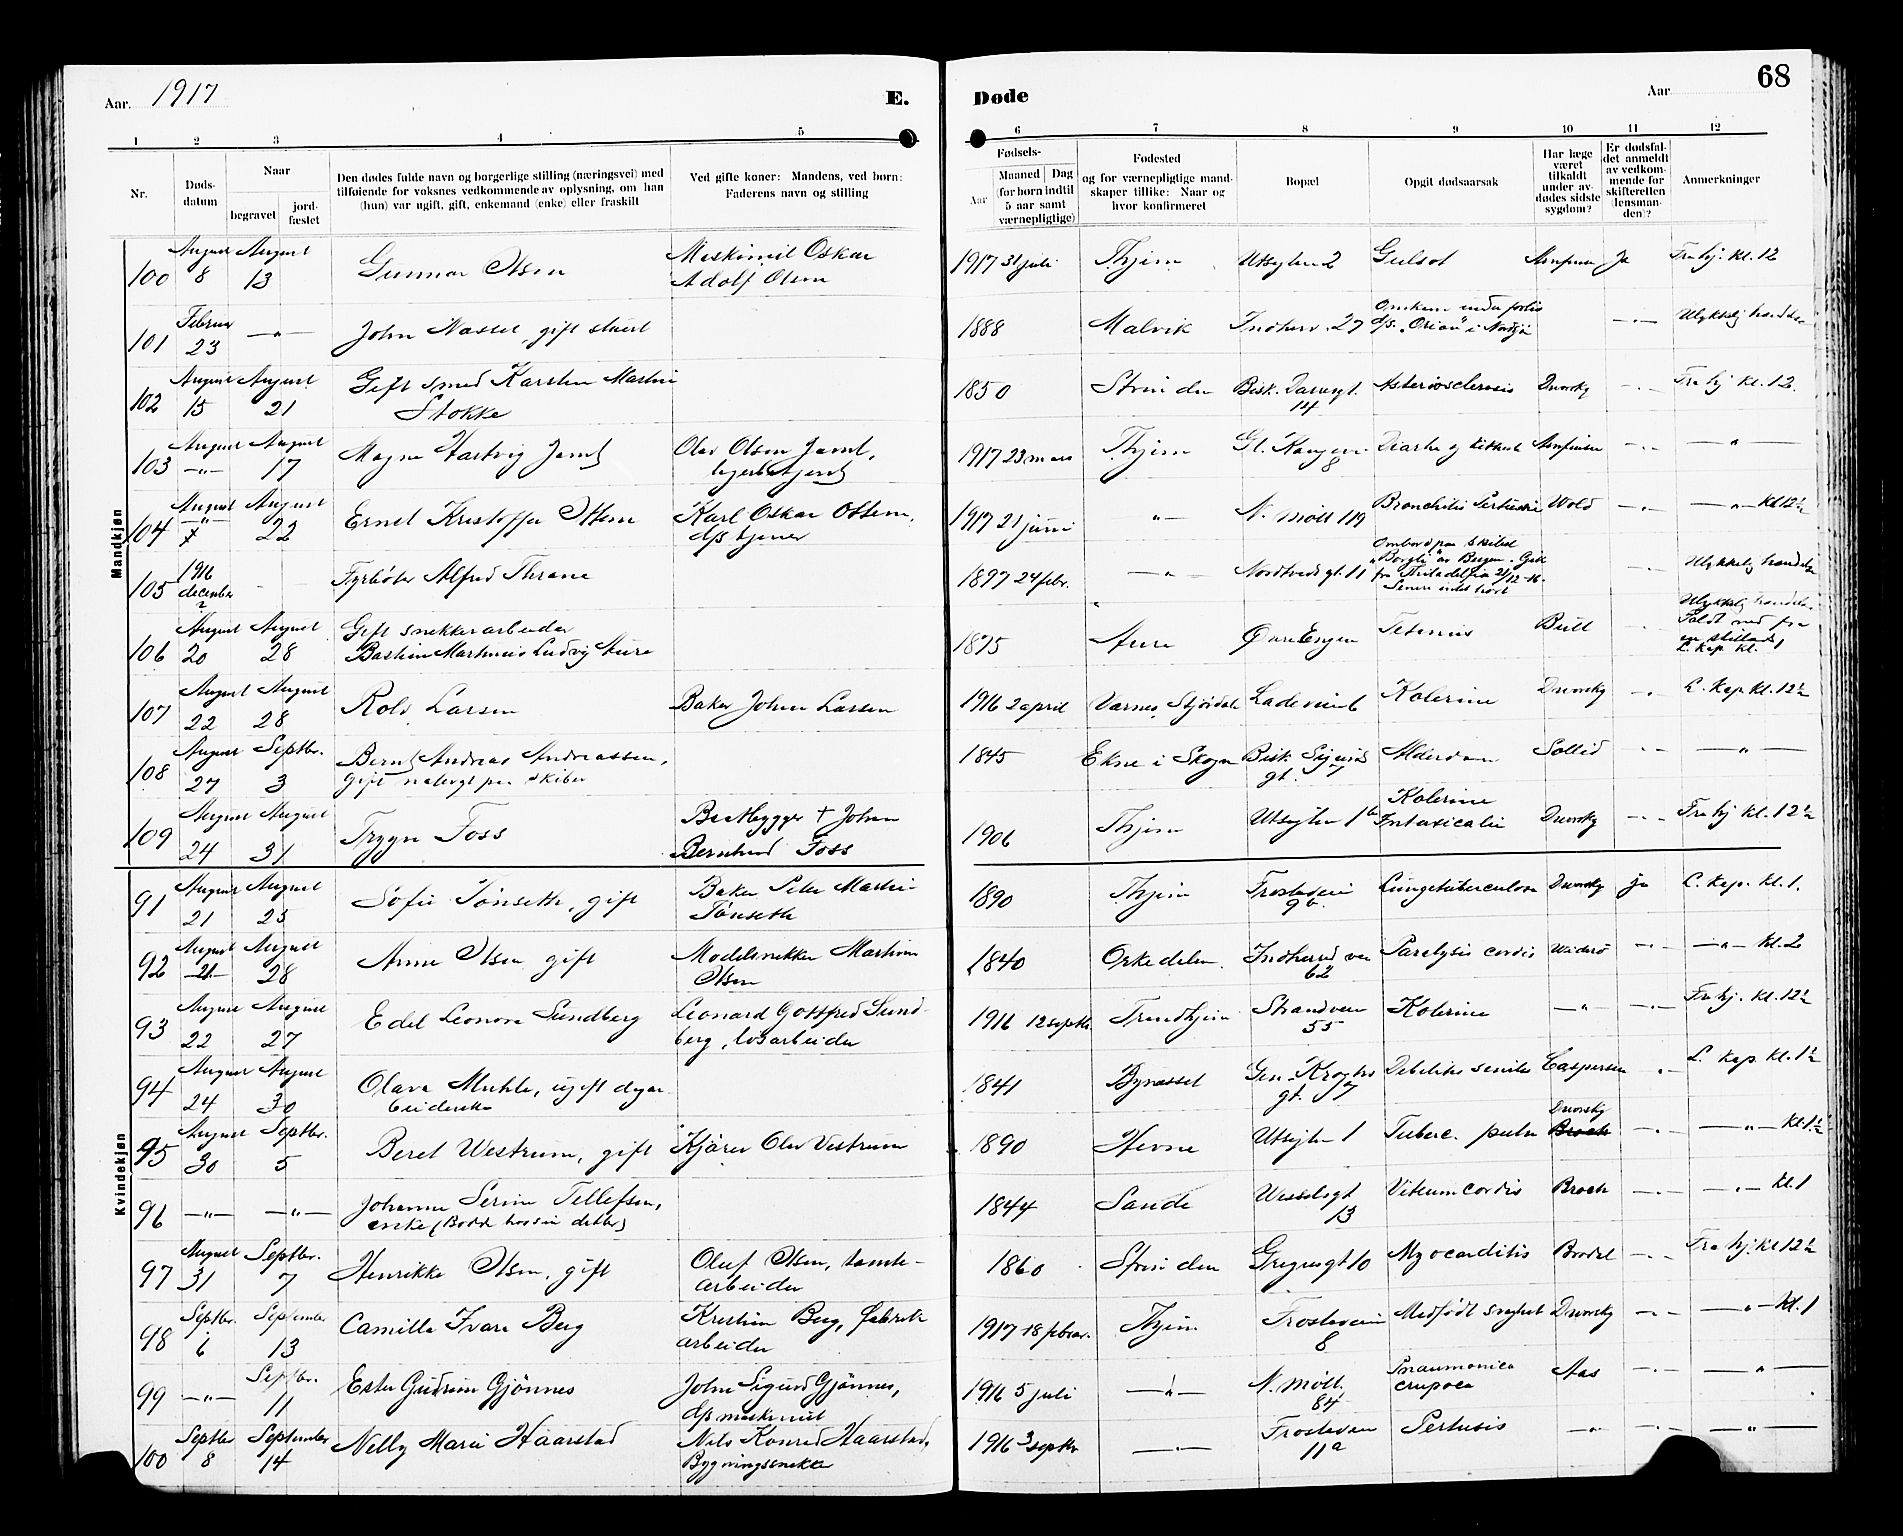 Aar. 1917
E.
Døde
Aar
68
1 2 3 4 5 6 7 8 9 10 11 12
Nr.
Døds-datum
Naar
begravet
jord-fæstet
Den dødes fulde navn og borgerlige stilling (næringsvei) med
tilføiende for voksnes vedkommende av oplysning, om han
(hun) var ugift, gift, enkemand (enke) eller fraskilt
Ved gifte koner: Mandens, ved børn:
Faderens navn og stilling
Fødsels-
Aar
Maaned | Dag
(for børn indtil
5 aar samt
værnepligtige)
Fødested
og for værnepligtige mand-
skaper tillike: Naar og
hvor konfirmeret
Bopæl
Opgit dødsaarsak
Har læge
været
tilkaldt
under av-
dødes sidste
sygdom?
Er dødsfal-
det anmeldt
av vedkom-
mende for
skifteretten
(lensman-
den)?
Anmerkninger
Mandkjøn
100 August 8 August 13 Gunnar Olsen Maskinist Oskar Adolf Olsen 1917 31 juli Thjem Utsigten 2 Gulsot Ja kl. 12
101 Februar 23 —"— John gift 1888 Malvik Indherv. 27 "Orion" i —"—
102 August 15 August 21 Gift smed Karsten Martin Stokke 1850 Strinden Bisk. Daresgt. 14 Arteriosclerosis Duvosky —"— kl. 12.
103 August —"— August 17 Magne Hartvig Jamt Olav Olsen Jamt, 1917 23 mars Thjem 8 —"— —"—
104 August —"— 7 August 22 Ernst Kristoffer Ottem Karl Oskar Ottem, d/s tjener 1917 21 juni —"— N. Møll 119 Bronchitis Wold —"— —"— kl 12½
105 1916 december ? Fyrbøter Alfred Thrane 1897 24 febr. —"— gt. 11 Ombord paa Skibet av Bergen. fra Philadelphia 21/12-16. Senere intet hørt —"— Ulykkelig hændelse
106 August 20 August 28 Gift snekkerarbeider Bastian Martinus Ludvig Aure 1875 Aure Øvre Engen Tetanus Bull —"— Ulykkelig hændelse. Faldt ned fra en stillads L. kap kl. 1
107 August 22 August 28 Rolv Larsen Baker Johan Larsen 1916 2 april Værnes, Stjørdal Kolerine Duvosky —"— L. kap kl. 12½
108 August 27 Septbr. 3 Bernt Andreas Andreassen, gift natvagt paa skibe 1845 Ekne i Skogn Bisk Sigurds gt. 7 Alderdom Sollid —"— —"—
109 August 24 August 31 Trygve Foss Johan Bernhard Foss 1906 Thjem Utsigten 1b Kolerine Intoxicatio Duvosky —"— kl. 12½
Kvindekjøn
91 August 21 August 25 Sofie Tønseth, gift Baker Peter Martin Tønseth 1890 Thjem Frostaveien 9b. Lungetuberculose Duvosky ja L. kap. kl. 1.
92 August 21 August 28 Anne Olsen gift Modelsnekker Martin Olsen 1840 Orkedalen Indherredsveien 62 Paralysis cordis Widerö —"— —"— kl. 2
93 August 22 August 27 Edel Leonora Sundberg Leonard Gottfred Sundberg, løsarbeider 1916 12 septbr. Trondhjem Strandveien 55 Kolerine —"— —"— kl. 12½
94 August 24 August 30 Olava Muhle, ugift dagarbeiderske 1841 Bynesset Gen. Kroghs gt. 7 Debilitas senilis Caspersen —"— L. kap. kl. 1½
95 August 30 Septbr. 5 Beret Westrum, gift Kjører Olav Vestrum 1890 Hevne Utsigten 1 Tuberc. pulm Duvosky Broch —"— —"— kl. 1½
96 —"— —"— Johanne Serine Tellefsen, enke (Bodde hos sin datter) 1844 Sande Wesselsgt 13 Vitium cordis Broch —"— —"— kl 1
97 August 31 Septbr. 7 Henrikke Olsen, gift Oluf Olsen, tomtearbeider 1860 Strinden Gregusgt 10 Myocarditis —"— kl 12½
98 Septbr. 6 September 13 Camilla Ivara Berg Kristian Berg, fabrikarbeider 1917 18 februar. Thjem Frostaveien 8 Medfødt svaghet Duvosky —"— —"— kl. 1
99 —"— Septbr. 11 Ester Gudrun Gjønnes John Sigurd Gjønnes, d/s maskinist 1916 5 juli —"— N. Møll. 84 Pneumonica cruposa Aas —"— —"—
100 Septbr 8 September 14 Nelly Marie Haarstad Nils Konrad Haarstad, Bygningssnekker 1916 3 septbr —"— Frostaveien 11a Pertusis —"— —"— —"—